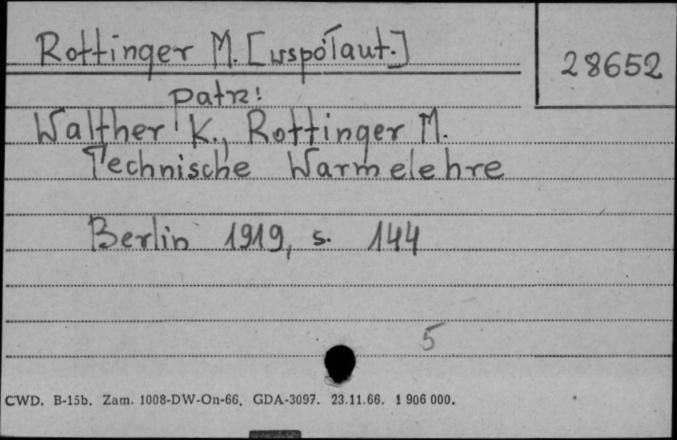 Rottinger M. [współaut.]
28652
patrz:
Walther K., Rottinger M.
Technische Warmelehre
Berlin 1919, s. 144
5
CWD. B-15b. Zam. 1008-DW-On-66. GDA-3097. 23.11.66. 1 906 000.